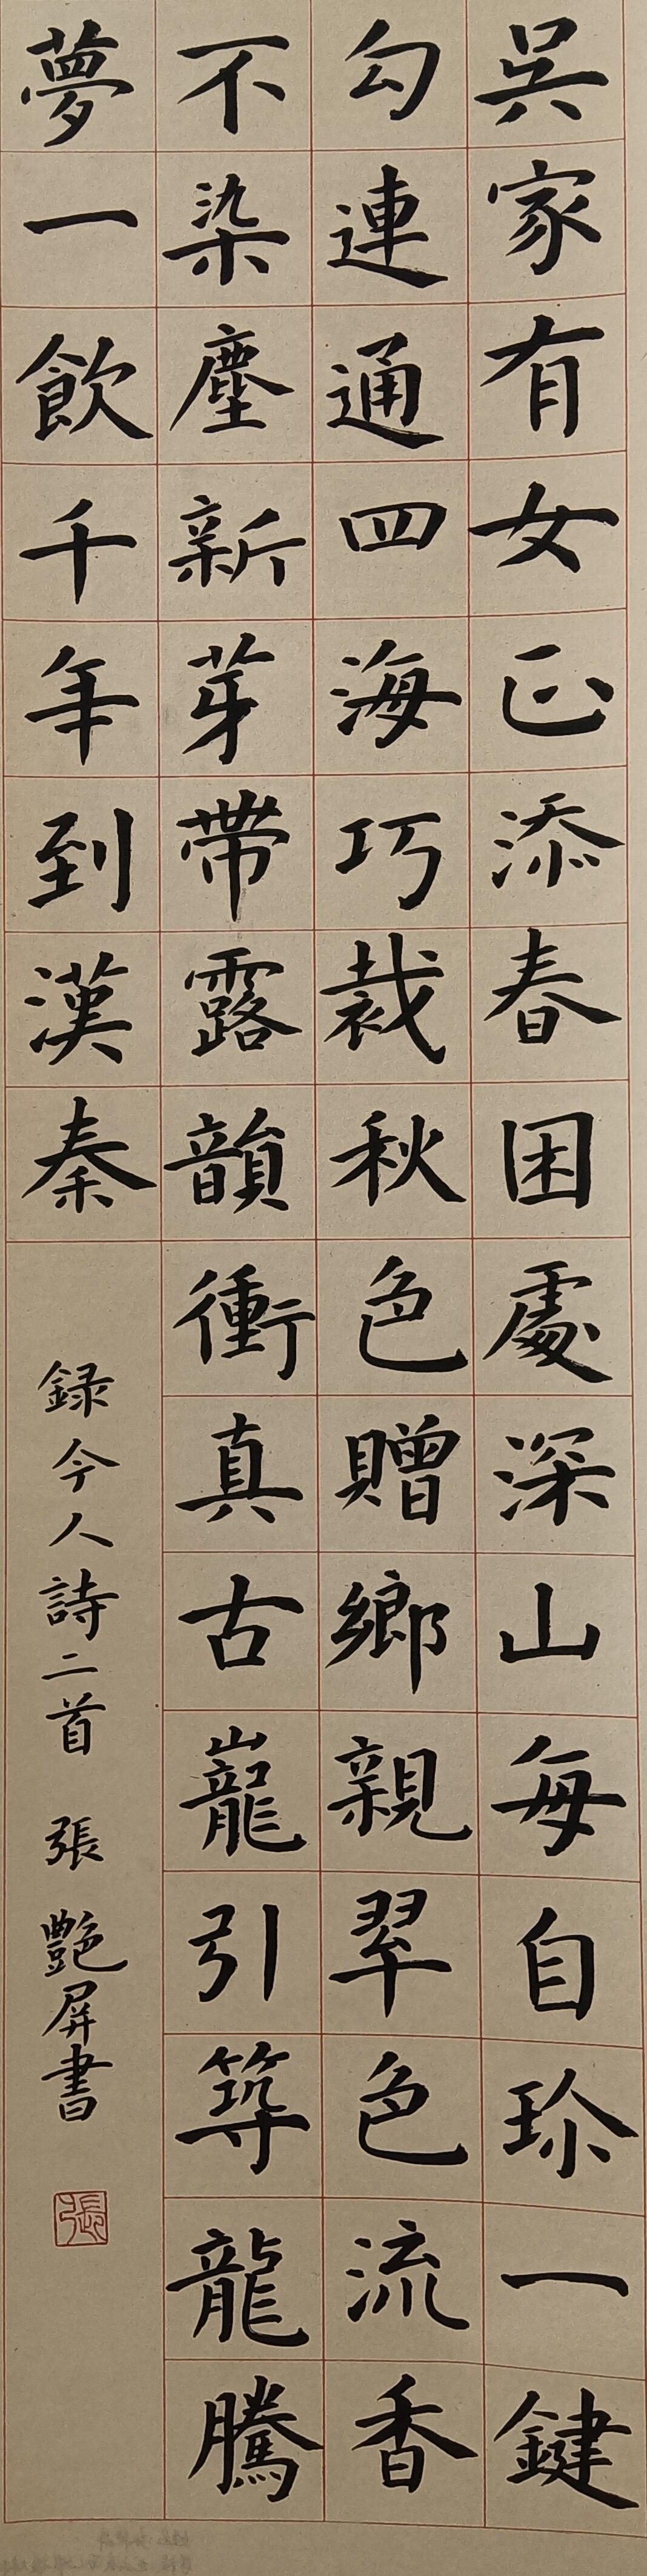 吳家有女正添春困處深山每自珍一鍵
勾連通四海巧裁秋色贈鄉親翠色流香
不染塵新芽帶露韻衝真古巃引築龍騰
夢一飲千年到漢秦
録今人詩二首 張艷屏書
張